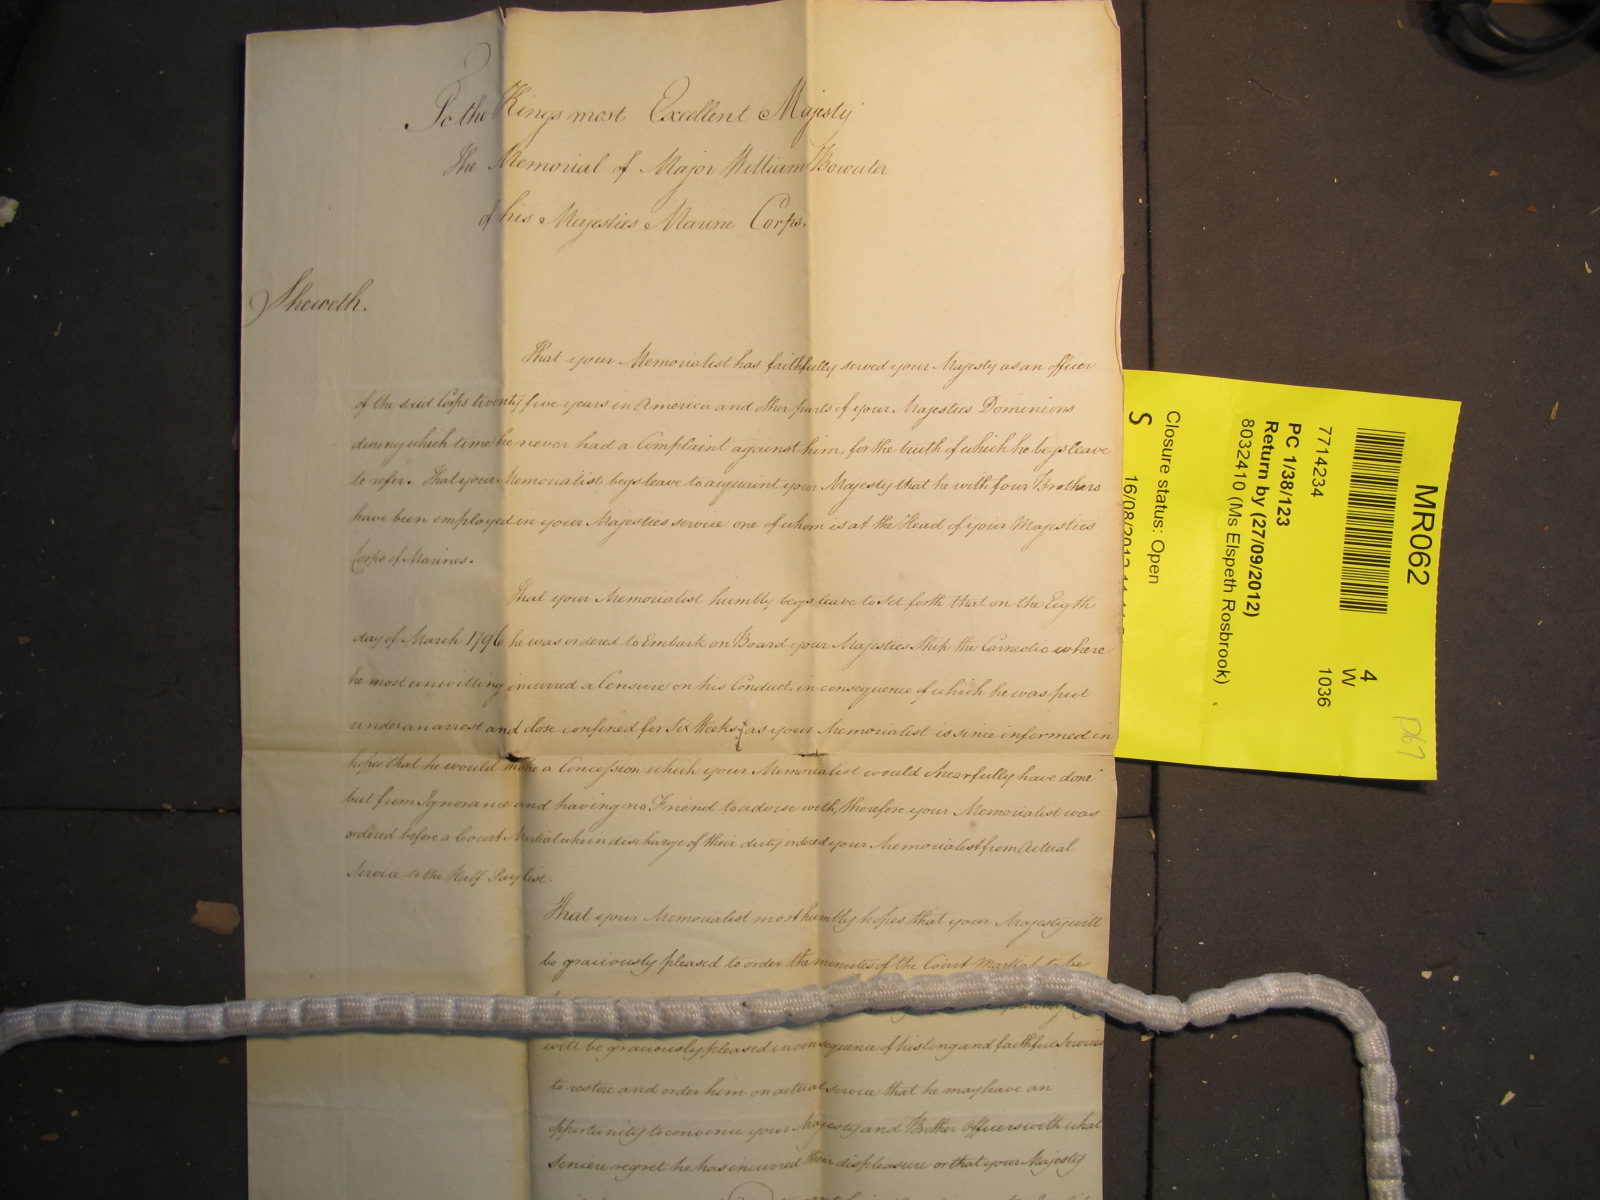 To the Kings most Excellent Majesty
The Memorial of Major William Bowater
of his Majesties Marine Corps.
Sheweth.
That your Memorialist has faithfully served your Majesty as an officer
of the said Corps twenty five years in America and other parts of your Majesties Dominions
during which time he never had a Complaint against him, for the truth of which he begs leave
to refer. That your Memorialist begs leave to acquaint your Majesty that he with four Brothers
have been employed in your Majesties service one of whom is at the Head of your Majesties
Corps of Marines.
That your Memorialist humbly begs leave to set forth that on the Eigth
day of March 1796 he was ordered to Embark on Board your Majesties Ship the Carnedic where
he most unwilling incurred a Censure on his Conduct, in consequence of which he was put
under an arrest and close confined for Six Weeks as your Memorialist is since informed in
hopes that he would make a Concession which your Memorialist would Chearfully have done
but from Ignorance and having no Friend to advise with, therefore your Memorialist was
ordered before a Court Martial who in discharge of their duty ordered your Memorialist from Actual
Service to the Half Pay list.
That your Memorialist most humbly hopes that your Majesty will
be graciously pleased to order the minutes of the Court Martial to be
will be graciously pleased in consequence of his long and faithful Services
to restore and order him on actual service that he may have an
opportunity to convince your Majesty and Brother Officers with what
sincere regret he has incurred their displeasure or that your Majesty
MR062
4
W
1036
7714234
PC 1/38/123
Return by (27/09/2012)
8032410 (Ms Elspeth Rosbrook)
Closure status: Open
S
16/08/2012